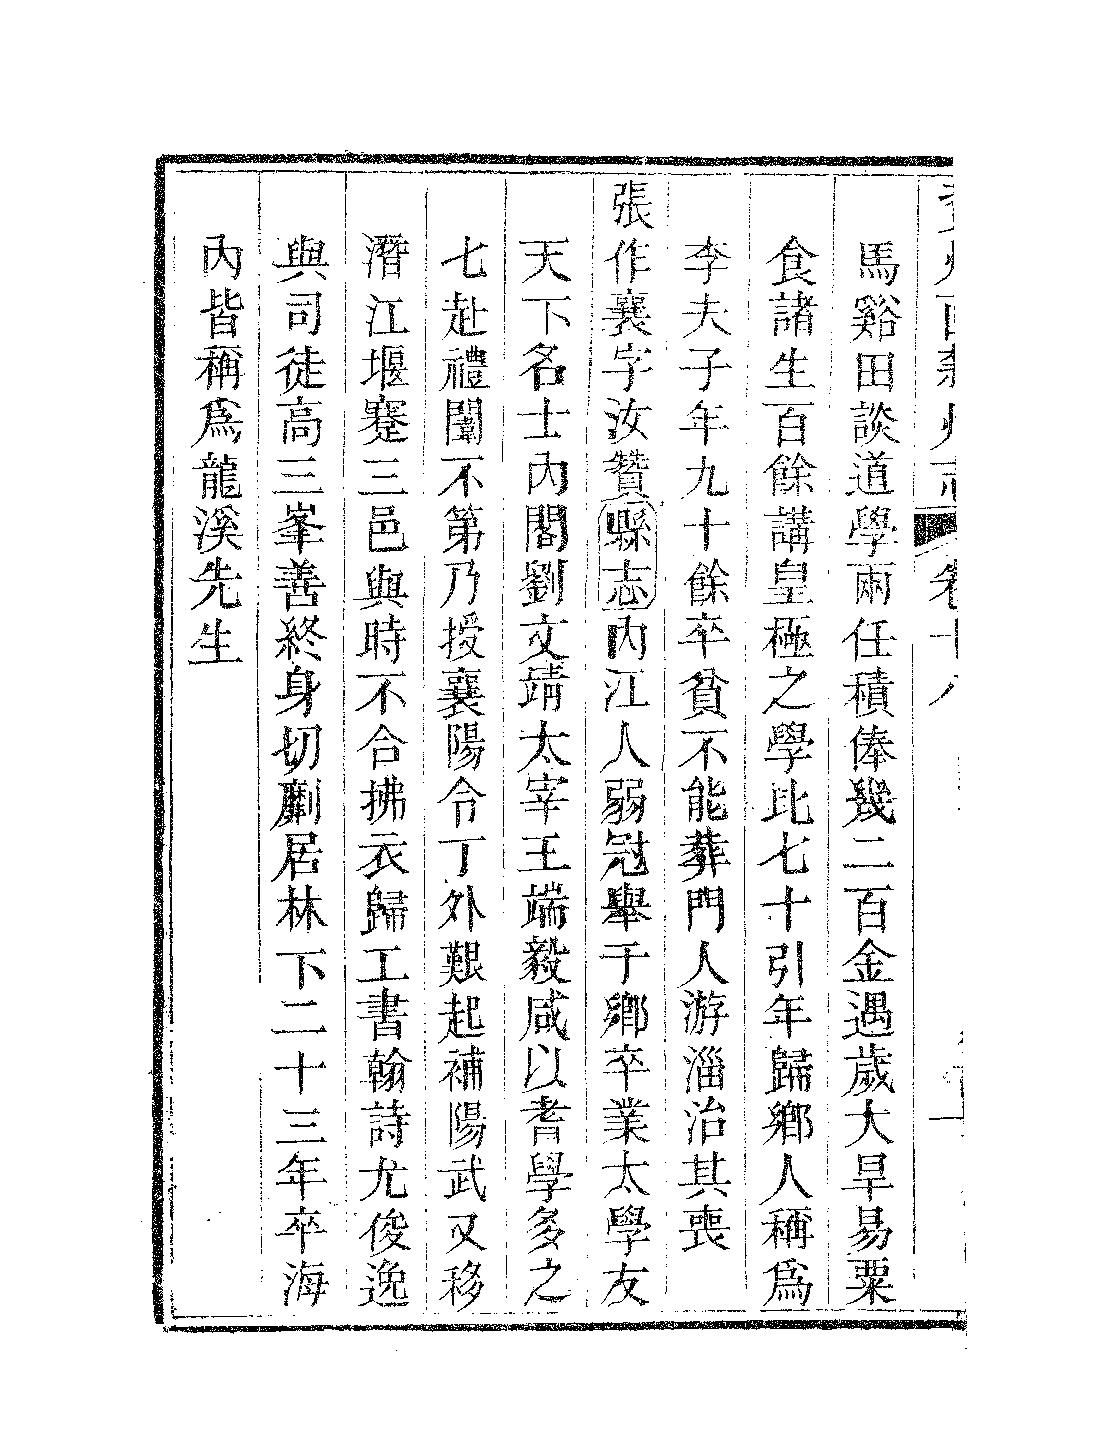 卷十八
馬谿田談道學兩任積俸幾二百金遇歲大旱易粟
食諸生百餘講皇極之學比七十引年歸鄉人稱爲
李夫子年九十餘卒貧不能葬門人游淄治其喪
張作襄字汝贊縣志內江人弱冠舉于鄉卒業太學友
天下名士內閣劉文靖太宰王端毅咸以耆學多之
七赴禮闈不第乃授襄陽令丁外艱起補陽武又移
潛江堰蹇三邑與時不合拂衣歸工書翰詩尤俊逸
與司徒高三峯善終身切劘居林下二十三年卒海
內皆稱爲龍溪先生